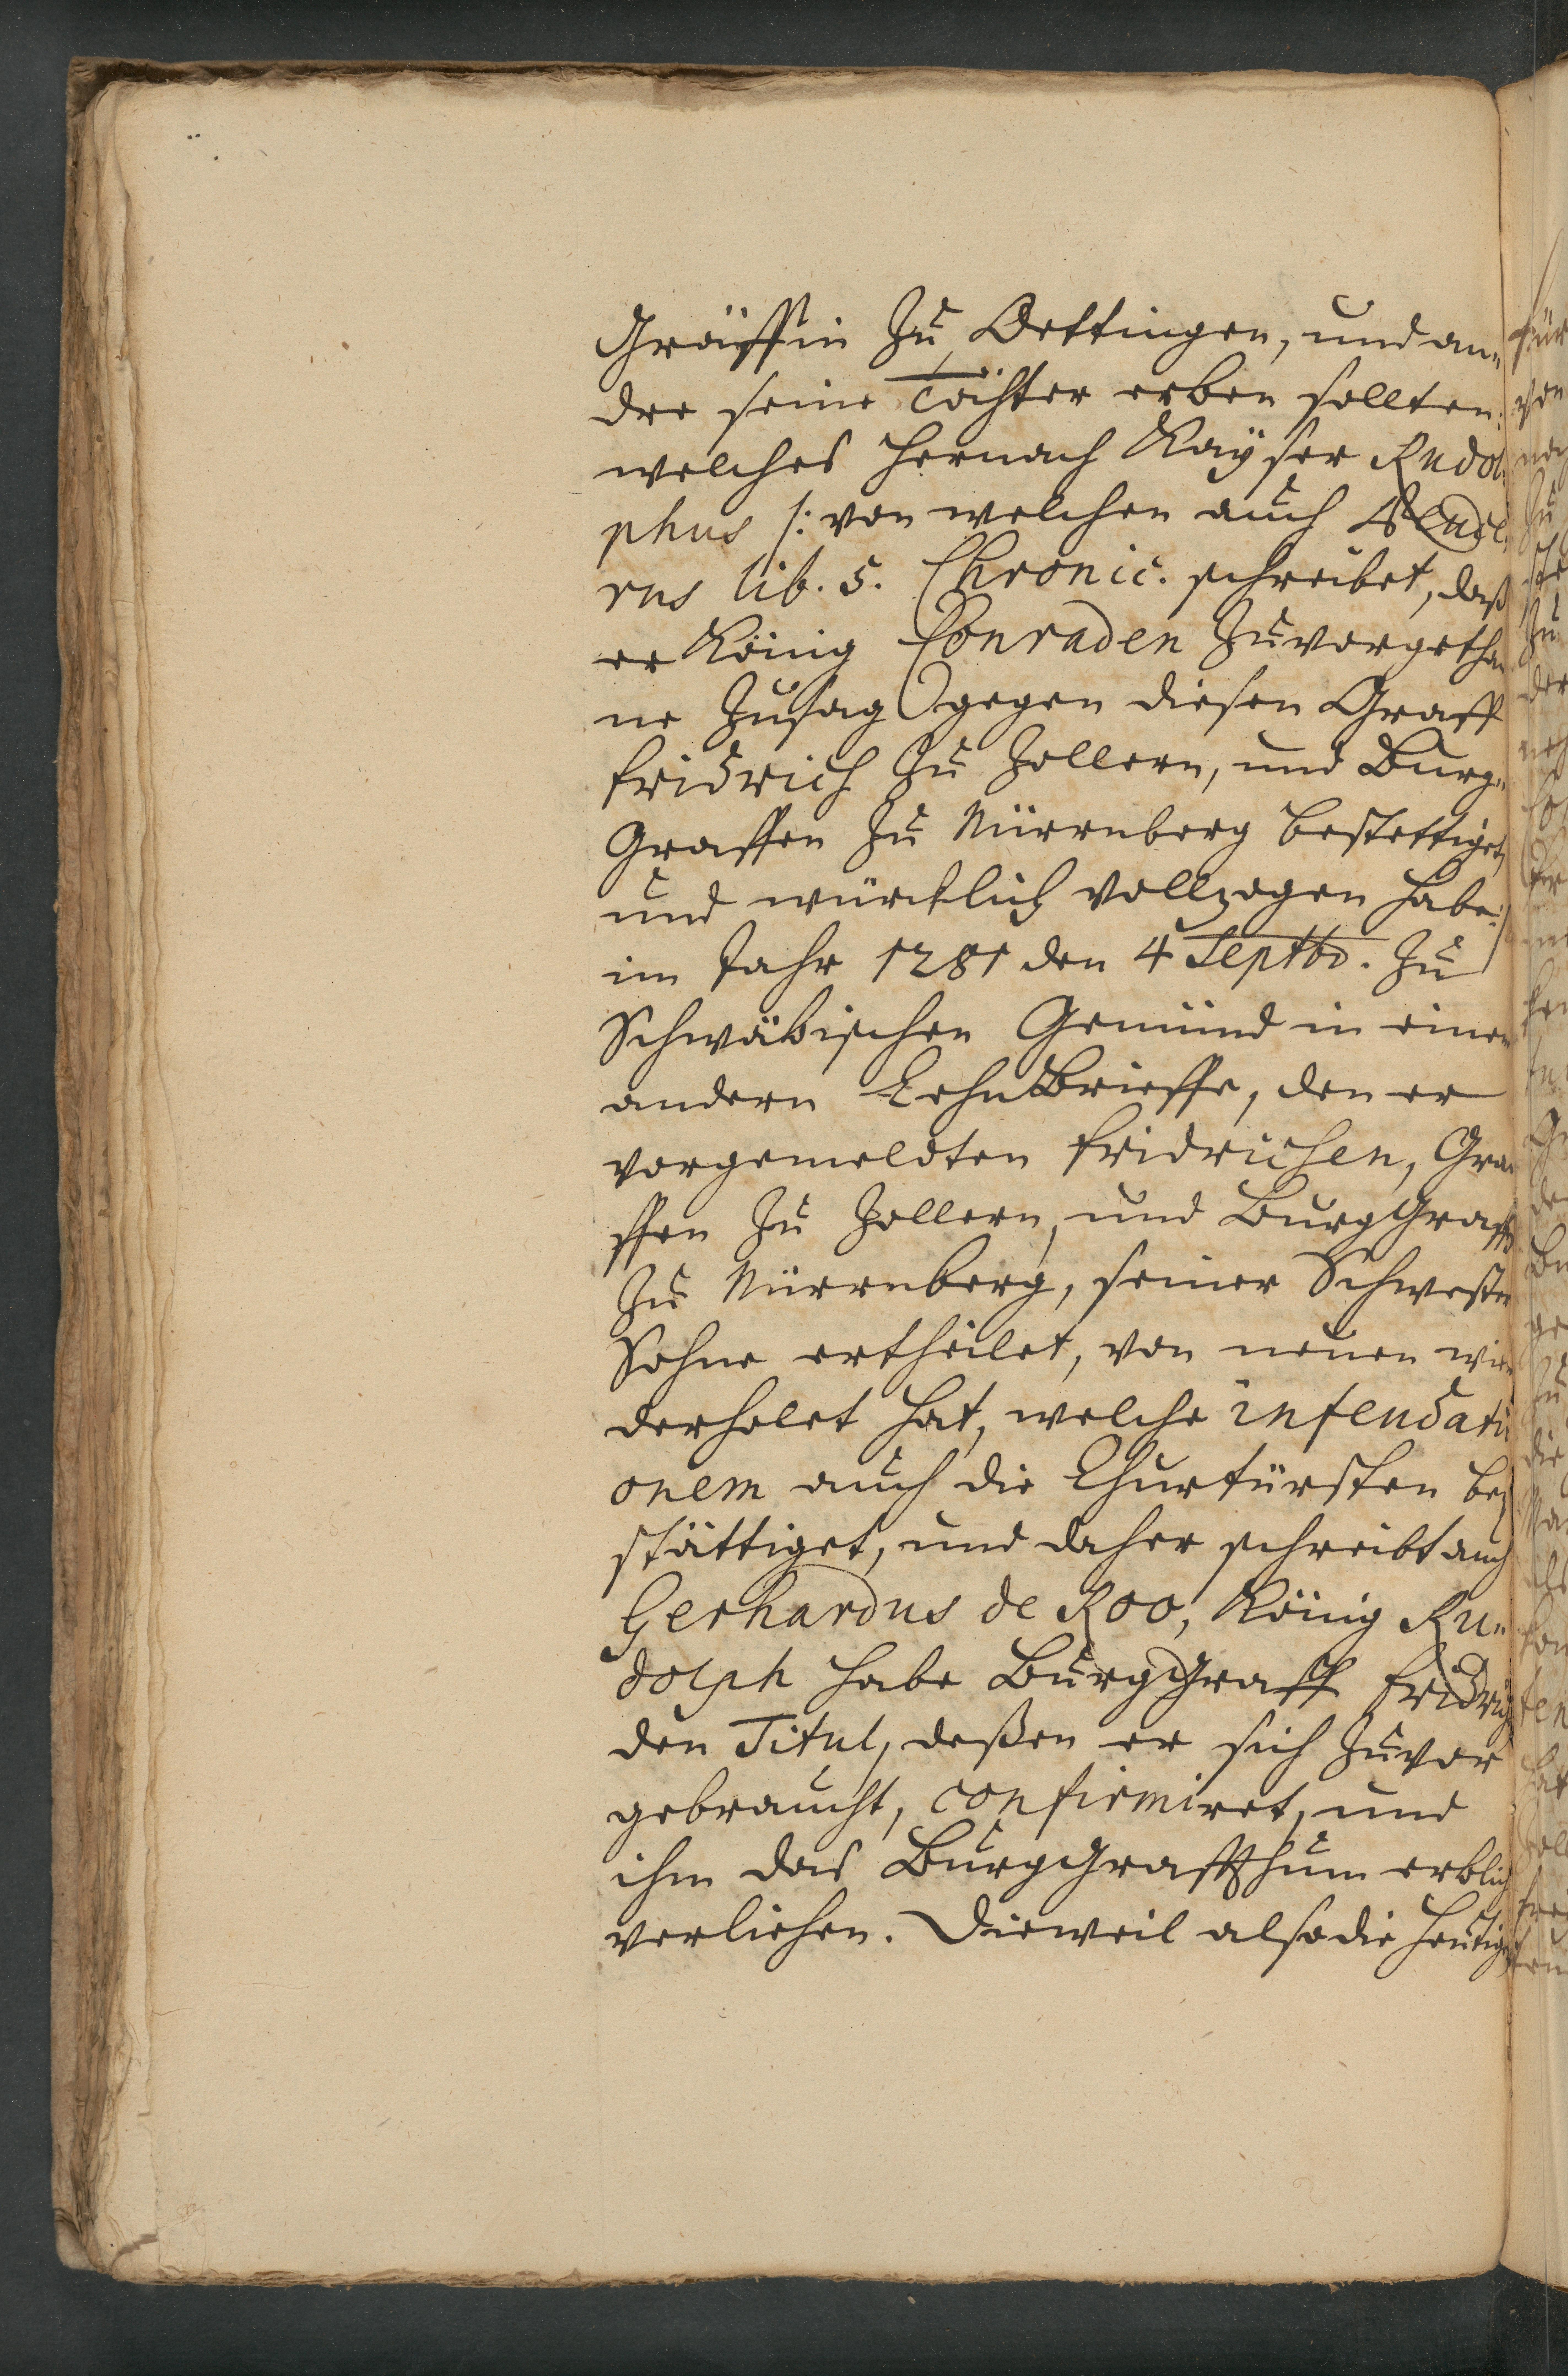 Gräffin zu Oettingen, und an„
dre seine Töchter erben sollten.
welches hernach Kayser Rudol„
phus /: von welchen auch
rus lib. 5. Chronic. schreibet, daß
er König Conraden zuvorgetha„
ne Zusag gegen diesen Graff
Fridrich zu Zollern, und Burg„
Graffen zu Nürrnberg bestettiget
und würcklich vollzogen habe :/
im Jahr 1281 den 4 Septbr. zu
Schwäbischen Gemünd in einen
andern LehnBrieffe, den er
vorgemeldten Fridrichen, Gra„
ffen zu Zollern, und BurgGraffen
zu Nürrnberg, seiner Schwester
Sohne ertheilet, von neuen wie„
derholet hat, welche infeudati
onem auch die Churfürsten be„
stättiget, und daher schreibt auch
Gerhardus de Roo, König Ru„
dolph habe BurgGraff Fridrich
den Titul, deßen er sich zuvor
gebraucht, confirmiret, und
ihm das BurgGraffthum erblich
verliehen. Dieweil also die heutigen